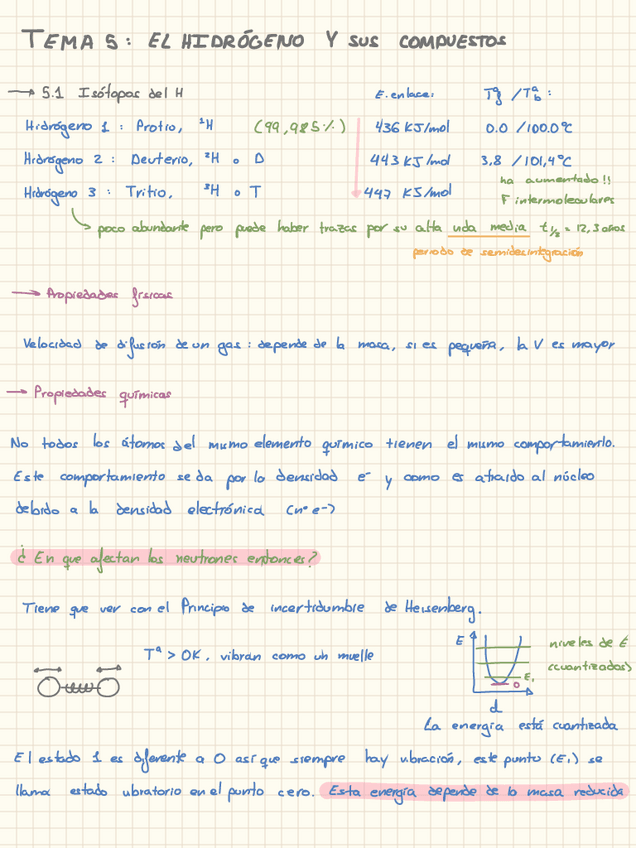 TEMA 5: EL HIDRÓGENO Y SUS COMPUESTOS
→ 5.1 Isótopos del H
E. enlace: Tªf / Tªb :
Hidrógeno 1 : Protio, ¹H (99,985%) 436 KJ/mol 0.0 /100.0°C
Hidrógeno 2 : Deuterio, ²H o D 443 KJ/mol 3,8 /101,4°C
ha aumentado !!
Hidrógeno 3 : Tritio, ³H o T 447 KJ/mol
F intermoleculares
poco abundante pero puede haber trazas por su alta vida media t1/2 = 12,3 años
periodo de semidesintegración
→ Propiedades físicas
Velocidad de difusión de un gas : depende de la masa, si es pequeña, la V es mayor
→ Propiedades químicas
No todos los átomos del mismo elemento químico tienen el mismo comportamiento.
Este comportamiento se da por la densidad e⁻ y como es atraído al núcleo
debido a la densidad electrónica (nº e⁻)
¿ En que afectan los neutrones entonces?
Tiene que ver con el Principio de incertidumbre de Heisenberg.
Tª > 0K, vibran como un muelle
E
niveles de E
(cuantizadas)
E₁
0
d
La energía está cuantizada
El estado 1 es diferente a 0 así que siempre hay vibración, este punto (E₁) se
llama estado vibratorio en el punto cero. Esta energía depende de la masa reducida